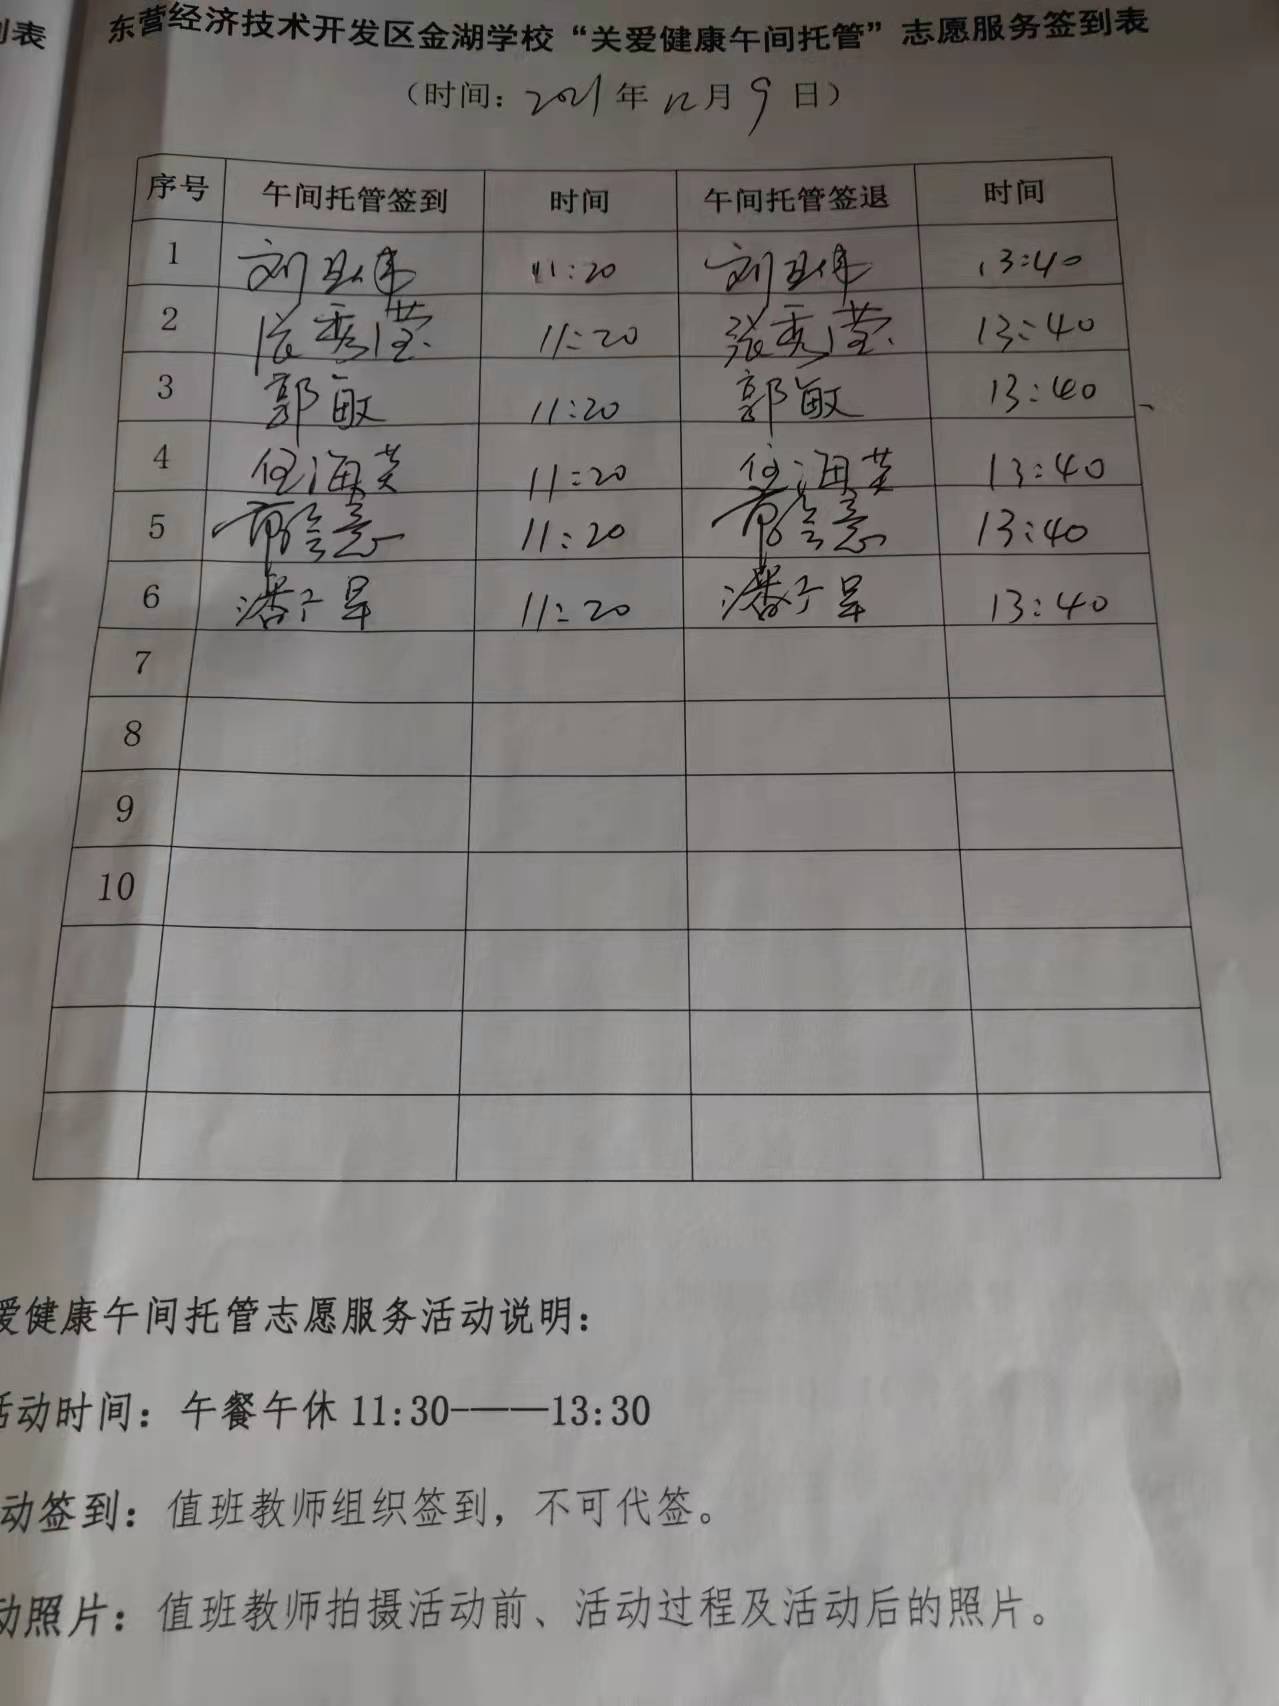 刂表
东营经济技术开发区金湖学校“关爱健康午间托管”志愿服务签到表
（时间：2021年12月9日）
序号 午间托管签到 时间 午间托管签退 时间
1 刘玉伟 11:20 刘玉伟 13:40
2 张秀莹 11:20 张秀莹 13:40
3 郭敏 11:20 郭敏 13:40
4 任海英 11:20 任海英 13:40
5 11:20 13:40
6 潘子旱 11:20 潘子旱 13:40
7
8
9
10
爱健康午间托管志愿服务活动说明：
活动时间：午餐午休11:30———13:30
动签到：值班教师组织签到，不可代签。
动照片：值班教师拍摄活动前、活动过程及活动后的照片。